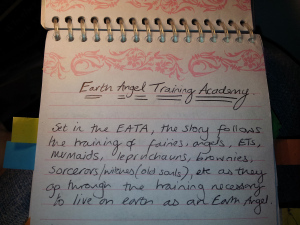 Earth Angel Training Academy.
Set in the EATA, the story follows
the training of fairies, angels, ETs,
mermaids, leprechauns, brownies,
sorcerors/witches (old souls), etc as they
go through the training necessary
to live on earth as an Earth Angel.